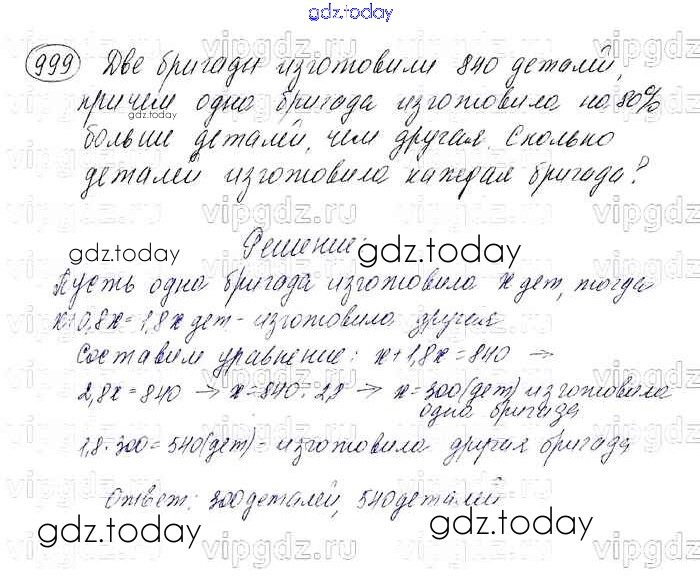 gdz.today
999 Две бригады изготовили 840 деталей,
причем одна бригада изготовила на 80%
больше деталей, чем другая. Сколько
деталей изготовила каждая бригада?
Решение:
Пусть одна бригада изготовила x дет, тогда
x+0,8x=1,8x дет - изготовила другая
Составим уравнение: x+1,8x=840 →
2,8x=840 → x=840:2,8 → x=300(дет) изготовила
одна бригада
1,8·300=540(дет) - изготовила другая бригада
Ответ: 300 деталей, 540 деталей
gdz.today
gdz.today
gdz.today
gdz.today
gdz.today